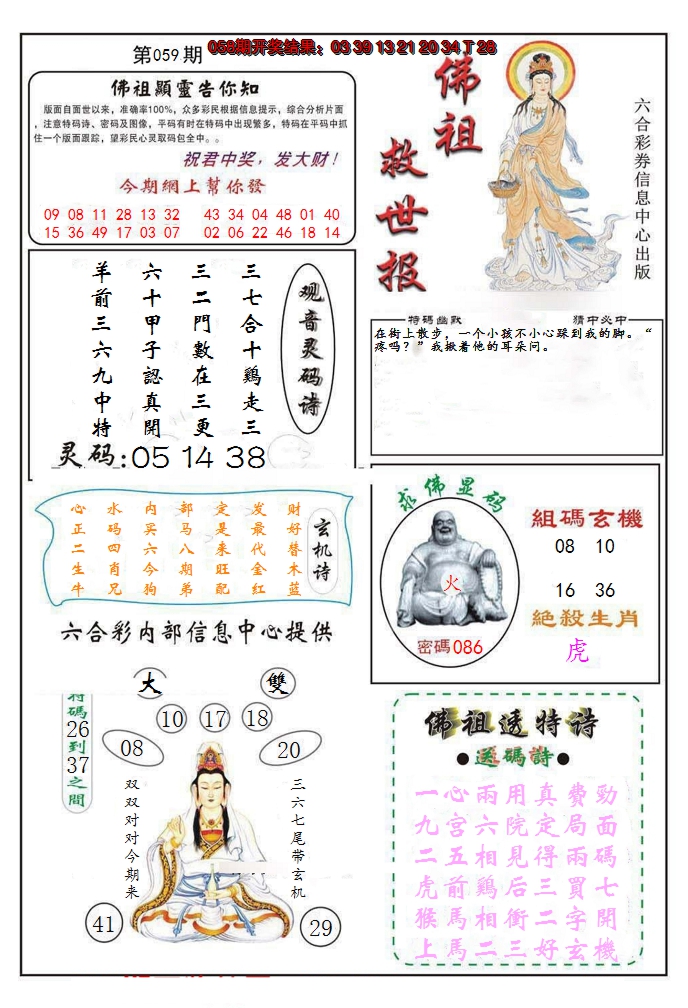 第059期
058期开奖结果：03 39 13 21 20 34 丁 28
佛祖顯靈告你知
版面自面世以来，准确率100%，众多彩民根据信息提示，综合分析片面
，注意特码诗、密码及图像，平码有时在特码中出现繁多，特码在平码中抓
住一个版面跟踪，望彩民心灵取码包全中。。
祝君中奖，发大财！
今期網上幫你發
09 08 11 28 13 32 43 34 04 48 01 40
15 36 49 17 03 07 02 06 22 46 18 14
佛祖救世报
六合彩券信息中心出版
观音灵码诗
三七合十鷄走三
三二門數在三更
六十甲子認真開
羊前三六九中特
灵码:05 14 38
特碼幽默
猜中必中
在街上散步，一个小孩不小心踩到我的脚。“
疼吗？”我揪着他的耳朵问。
玄机诗
财好替木蓝
发最代金红
定是来旺配
部马八期弟
内买六今狗
水码四肖兄
心正二生牛
六合彩内部信息中心提供
求佛显码
火
密碼086
組碼玄機
08 10
16 36
絶殺生肖
虎
大
雙
特碼26到37之間
10
17
18
08
20
双双对对今期来
三六七尾带玄机
41
29
佛祖透特诗
●送碼詩●
一心兩用真費勁
九宫六院定局面
二五相見得兩碼
虎前鷄后三買七
猴馬相衝二字開
上馬二三好玄機